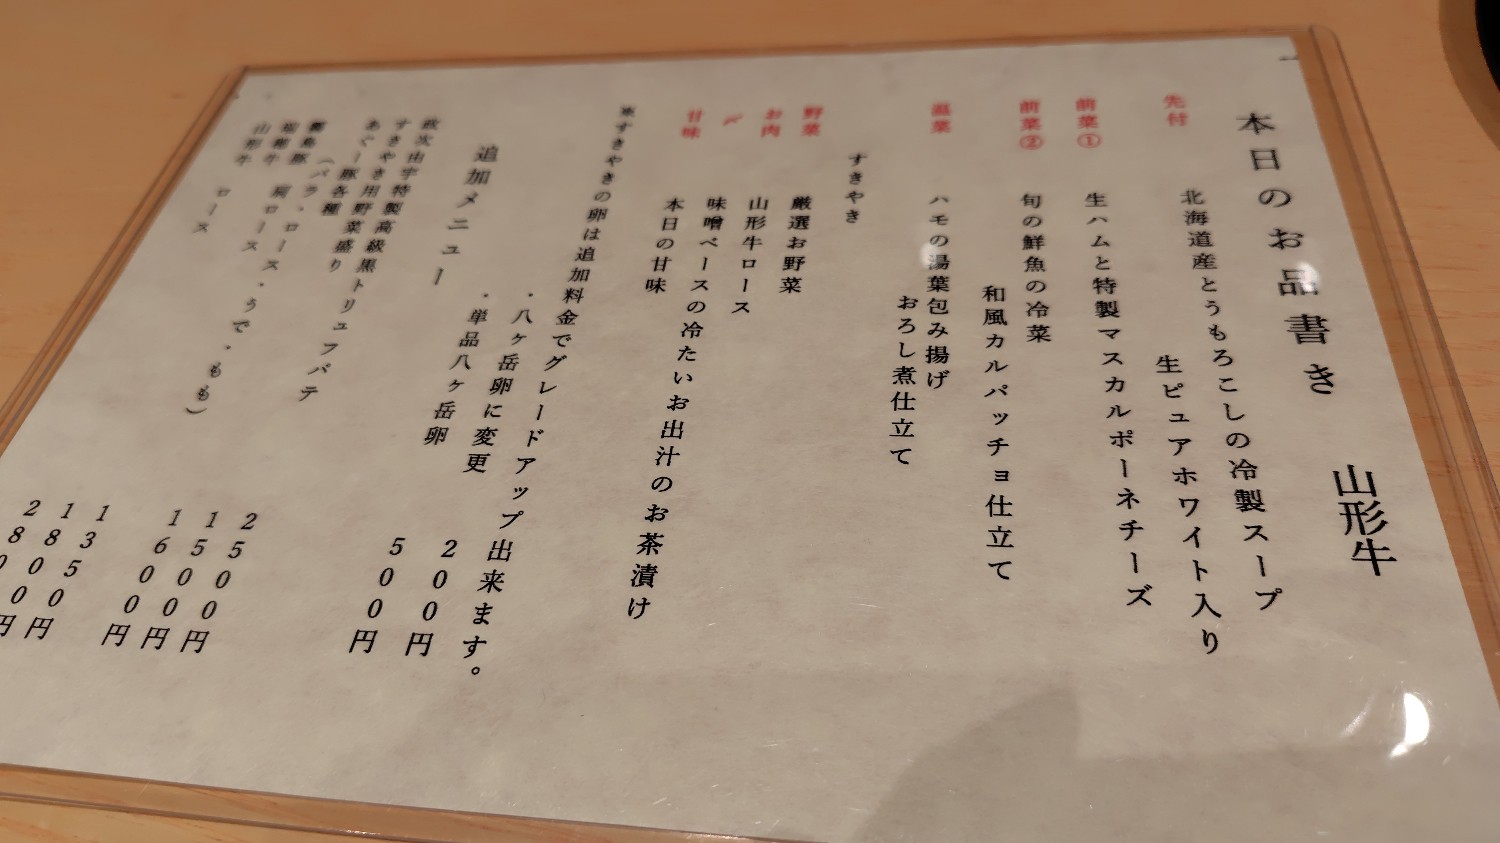 本日のお品書き　山形牛
先付
北海道産とうもろこしの冷製スープ
生ピュアホワイト入り
前菜①
生ハムと特製マスカルポーネチーズ
前菜②
旬の鮮魚の冷菜
和風カルパッチョ仕立て
温菜
ハモの湯葉包み揚げ
おろし煮仕立て
すきやき
野菜
厳選お野菜
お肉
山形牛ロース
〆
味噌ベースの冷たいお出汁のお茶漬け
甘味
本日の甘味
※すきやきの卵は追加料金でグレードアップ出来ます。
・八ヶ岳卵に変更　200円
・単品八ヶ岳卵　500円
追加メニュー
政次由宇特製高級黒トリュフバテ　2500円
すきやき用野菜盛り　1500円
あぐー豚各種　1600円
(バラ・ロース・うで・もも)
霧島豚　ロース　1350円
肩ロース　1800円
山形牛　ロース　2800円